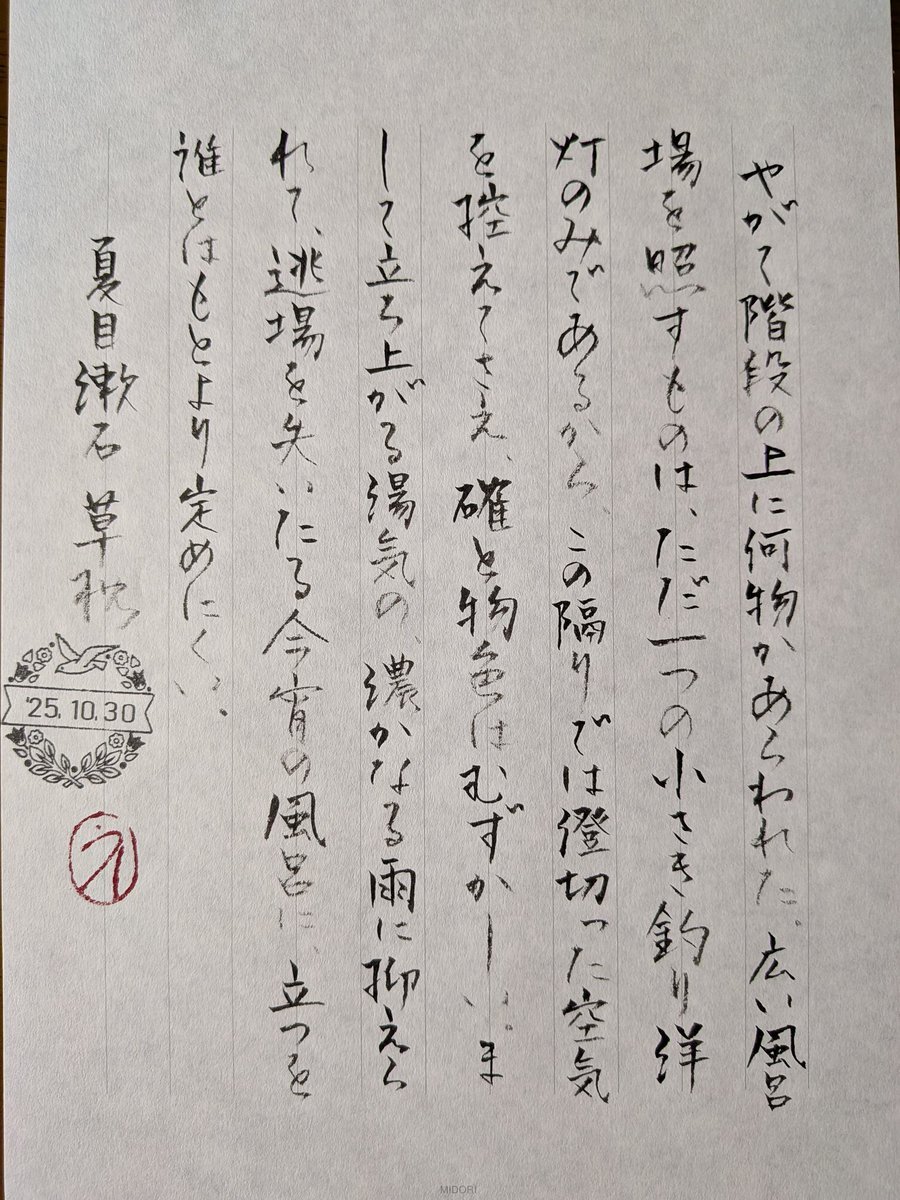 やがて階段の上に何物かあらわれた。広い風呂
場を照すものは、ただ一つの小さき釣り洋
灯のみであるから、この隔りでは澄切った空気
を控えてさえ、確と物色はむずかしい。ま
して立ち上がる湯気の、濃かなる雨に抑えら
れて、逃場を失いたる今宵の風呂に、立つを
誰とはもとより定めにくい。
夏目漱石 草枕
'25.10.30
MIDORI